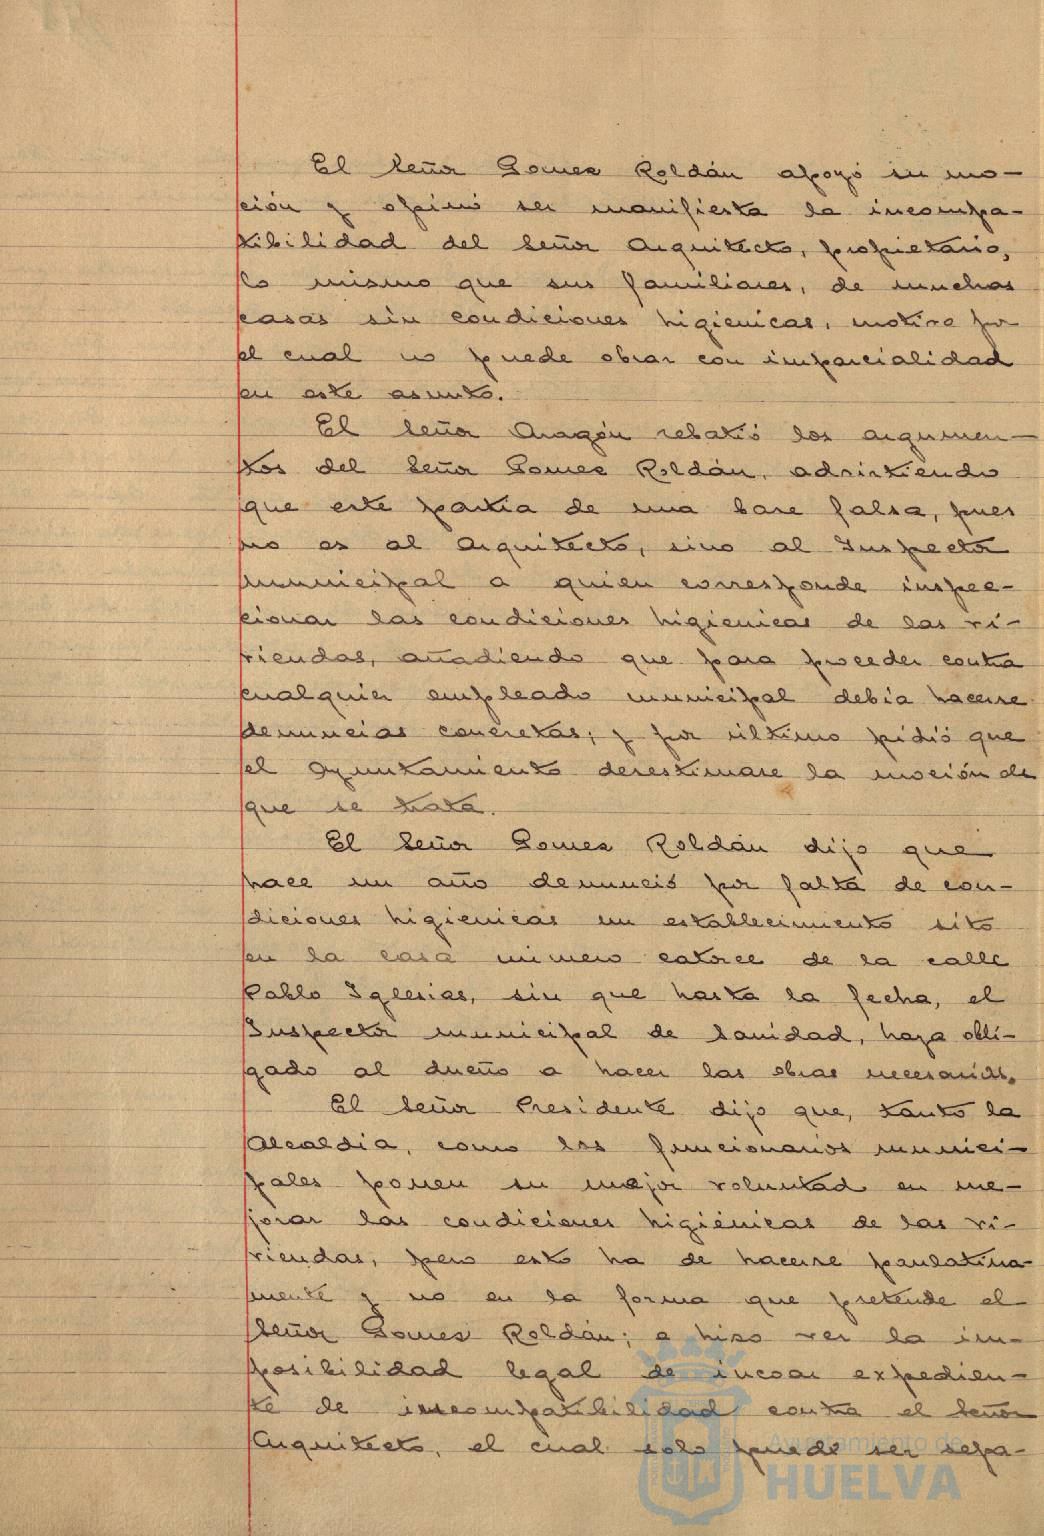 El Señor Gomez Roldán apoyó su mo-
ción y opinó ser manifiesta la incompa-
tibilidad del Señor Arquitecto, propietario,
lo mismo que sus familiares, de muchas
casas sin condiciones higienicas, motivo por
el cual no puede obrar con imparcialidad
en este asunto.
El Señor Aragón rebatió los argumen-
tos del Señor Gomez Roldán, advirtiendo
que este partia de una base falsa, pues
no es al Arquitecto, sino al Inspector
municipal a quien corresponde inspec-
cionar las condiciones higienicas de las vi-
viendas, añadiendo que para proceder contra
cualquier empleado municipal debía hacerse
denuncias concretas; y por último pidió que
el Ayuntamiento desestimase la moción de
que se trata.
El Señor Gomez Roldán dijo que
hace un año denunció por falta de con-
diciones higienicas un establecimiento sito
en la casa número catorce de la calle
Pablo Iglesias, sin que hasta la fecha, el
Inspector municipal de Sanidad, haya obli-
gado al dueño a hacer las obras necesarias.
El Señor Presidente dijo que, tanto la
Alcaldía, como los funcionarios munici-
pales ponen su mejor voluntad en me-
jorar las condiciones higiénicas de las vi-
viendas, pero esto ha de hacerse paulatina-
mente y no en la forma que pretende el
Señor Gomez Roldán; e hizo ver la im-
posibilidad legal de incoar expedien-
te de incompatibilidad contra el Señor
Arquitecto, el cual solo puede ser sepa-
Ayuntamiento de
HUELVA